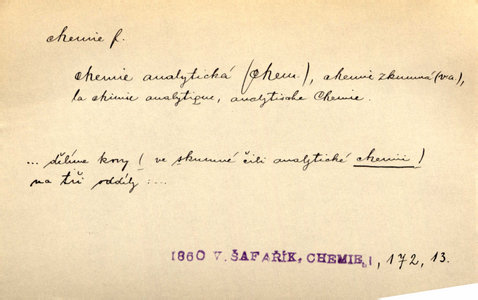 chemie f.
chemie analytická (Chem.), chemie zkumná (va),
la chimie analytique, analytische Chemie.
... dělíme kovy (ve skumné čili analytické chemii)
na tři oddíly : ...
1860 V. ŠAFAŘÍK, CHEMIE, 172, 13.